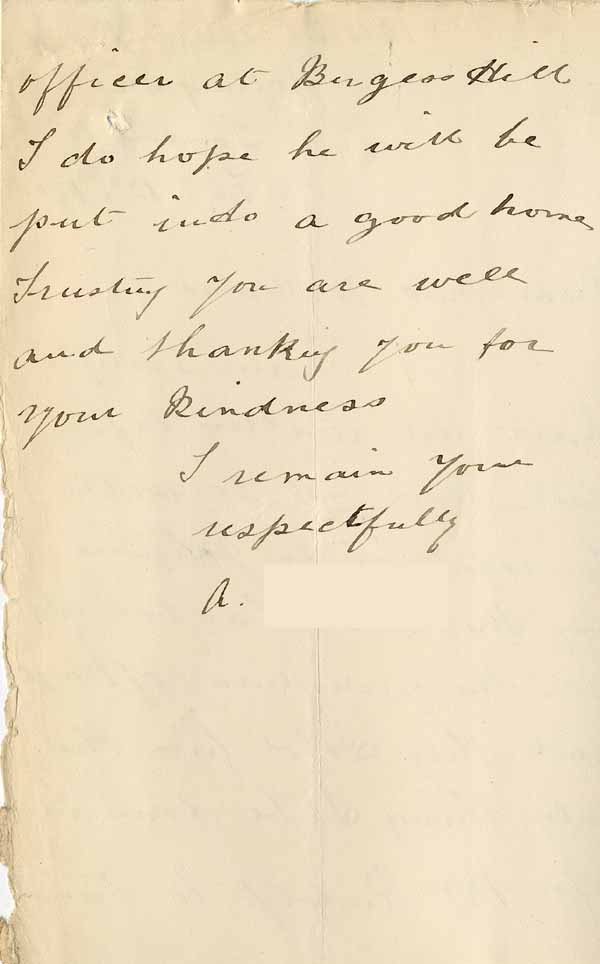 officer at Burgess Hill
I do hope he will be
put into a good home
Trusting you are well
and thanking you for
your Kindness
I remain your
respectfully
A.